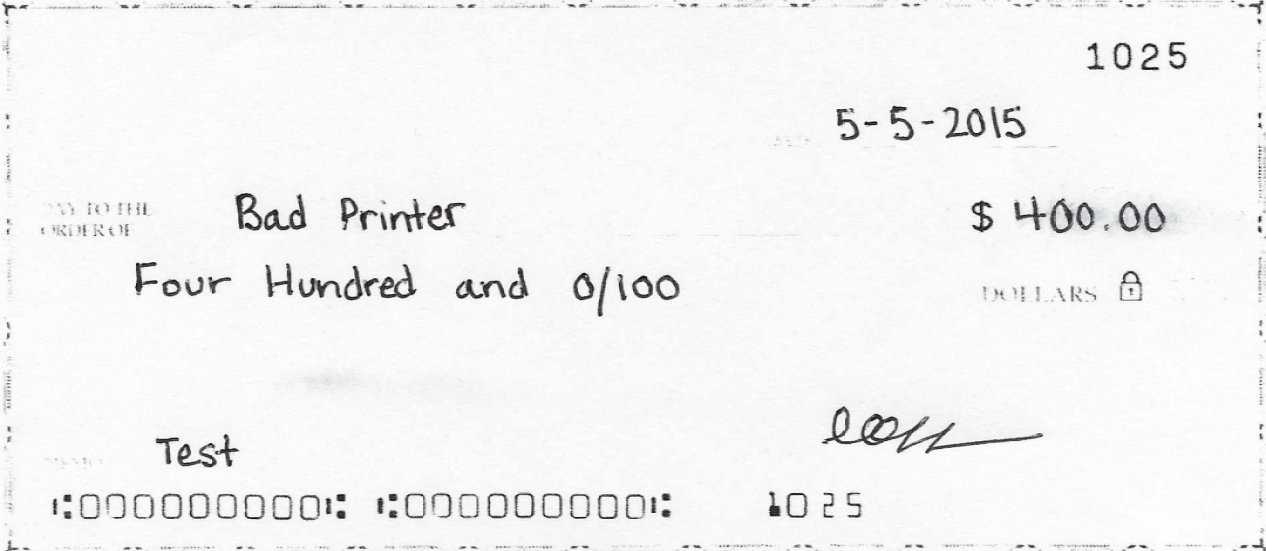 1025
5-5-2015
PAY TO THE
ORDER OF
Bad Printer
$ 400.00
Four Hundred and 0/100
DOLLARS
Test
⑆000000000⑆ ⑆000000000⑆ 1025